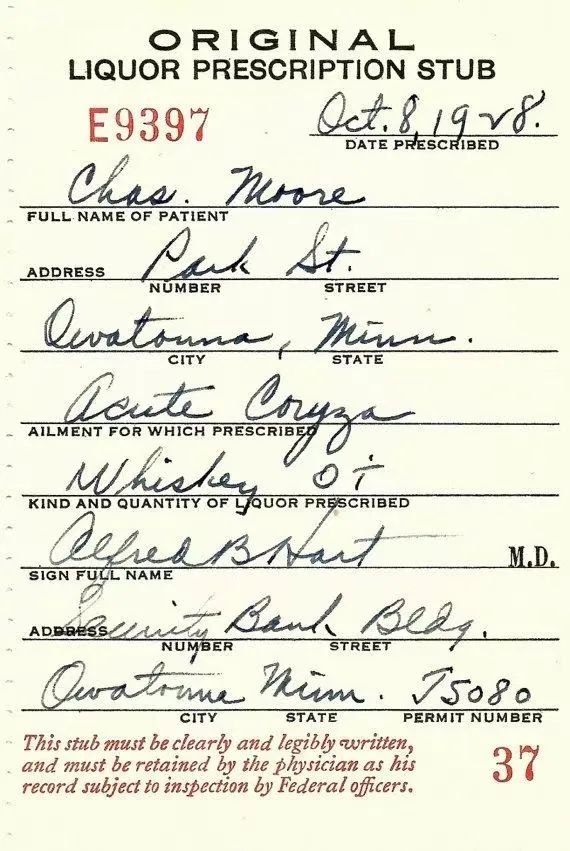 ORIGINAL
LIQUOR PRESCRIPTION STUB
E9397 Oct. 8, 1928.
DATE PRESCRIBED
Chas. Moore
FULL NAME OF PATIENT
ADDRESS Park St.
NUMBER STREET
Owatonna, Minn.
CITY STATE
Acute Coryza
AILMENT FOR WHICH PRESCRIBED
Whiskey O
KIND AND QUANTITY OF LIQUOR PRESCRIBED
Alfred B Hart M.D.
SIGN FULL NAME
ADDRESS Security Bank Bldg.
NUMBER STREET
Owatonna Minn. J5080
CITY STATE PERMIT NUMBER
This stub must be clearly and legibly written,
and must be retained by the physician as his
record subject to inspection by Federal officers.
37